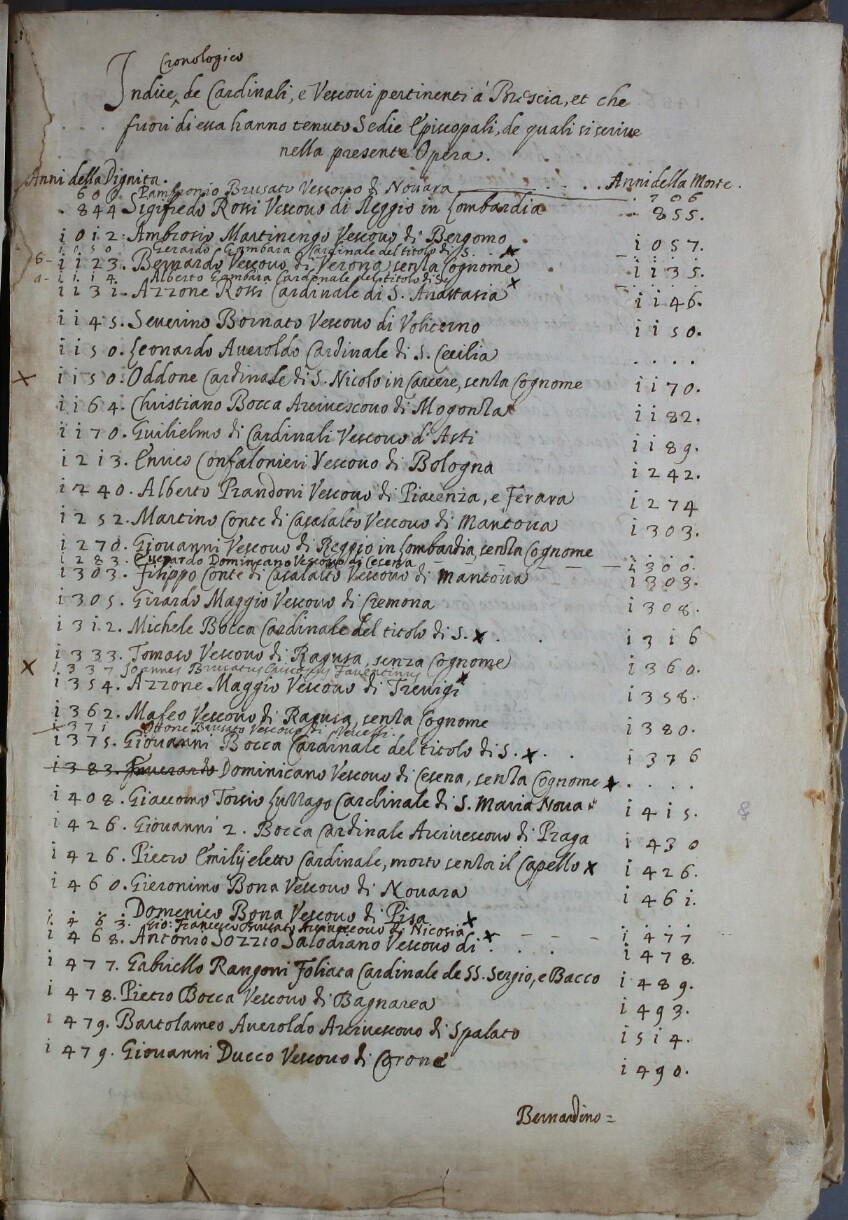 Cronologico
Indice, de Cardinali, e Vescovi pertinenti á Brescia, et che
fuori di essa hanno tenuto Sedie Episcopali, de quali si scrive
nella presente Opera.
Anni della Dignita. Anni della Morte.
600. Pampronio Brusato Vescovo di Novara 706
844 Sigifredo Rossi Vescovo di Reggio in Lombardia 855.
1012. Ambrosio Martinengo Vescovo di Bergomo 1057.
1150. Gerardo Gambara Cardinale del titolo di S. x
6- 1123. Bernardo Vescovo di Verona, senza Cognome 1135.
a- 1114. Alberto Gambara Cardonale del titolo di S. x
1131. Azzone Rossi Cardinale di S. Anastasia 1146.
1145. Severino Bornato Vescovo di Voliterno 1150.
1150. Leonardo Averoldo Cardinale di S. Cecilia . . . .
x 1150. Oddone Cardinale di S. Nicolo in Carcere, senza Cognome 1170.
1164. Christiano Bocca Arcivescovo di Mogonza 1182.
1170. Guilielmo di Cardinali Vescovo d'Asti 1189.
1213. Enrico Confalonieri Vescovo di Bologna 1242.
1240. Alberto Prandoni Vescovo di Piacenza, e Ferara 1274
1252. Martino Conte di Casalalto Vescovo di Mantova 1303.
1270. Giovanni Vescovo di Reggio in Lombardia, senza Cognome
1283. Everardo Dominicano Vescovo di Cesena 1300.
1303. Filippo Conte di Casalalto Vescovo di Mantova 1303.
1305. Girardo Maggio Vescovo di Cremona 1308.
1312. Michele Bocca Cardinale del titolo di S. x . . 1316
1333. Tomaso Vescovo di Ragusa, senza Cognome 1360.
x 1337 Joannes Brusatus Episcopus Faventinus
1354. Azzone Maggio Vescovo di Trevigi x 1358.
1362. Mafeo Vescovo di Ragusa, senza Cognome 1380.
x 1371 Ottone Brusato Vescovo di
1375. Giovanni Bocca Cardinale del titolo di S. x . . 1376
1383. Everardo Dominicano Vescovo di Cesena, senza Cognome x . . . .
1408. Giacomo Torsio Lurrago Cardinale di S. Maria Nova 1415. 8
1426. Giovanni 2. Bocca Cardinale Arcivescovo di Praga 1430
1426. Pietro Emilij eletto Cardinale, morto senza il Capello x 1426.
1460. Gieronimo Bona Vescovo di Novara 1461.
Domenico Bona Vescovo di Pisa x
1463. Gio: Francesco Brusato Arcivescovo di Nicosia 1477
1468. Antonio Sozzio Salodiano Vescovo di x . . . 1478.
1477. Gabriello Rangoni Foliata Cardinale de SS. Sergio, e Bacco 1489.
1478. Pietro Bocca Vescovo di Bagnarea 1493.
1479. Bartolameo Averoldo Arcivescovo di Spalato 1514.
1479. Giovanni Ducco Vescovo di Corone 1490.
Bernardino=